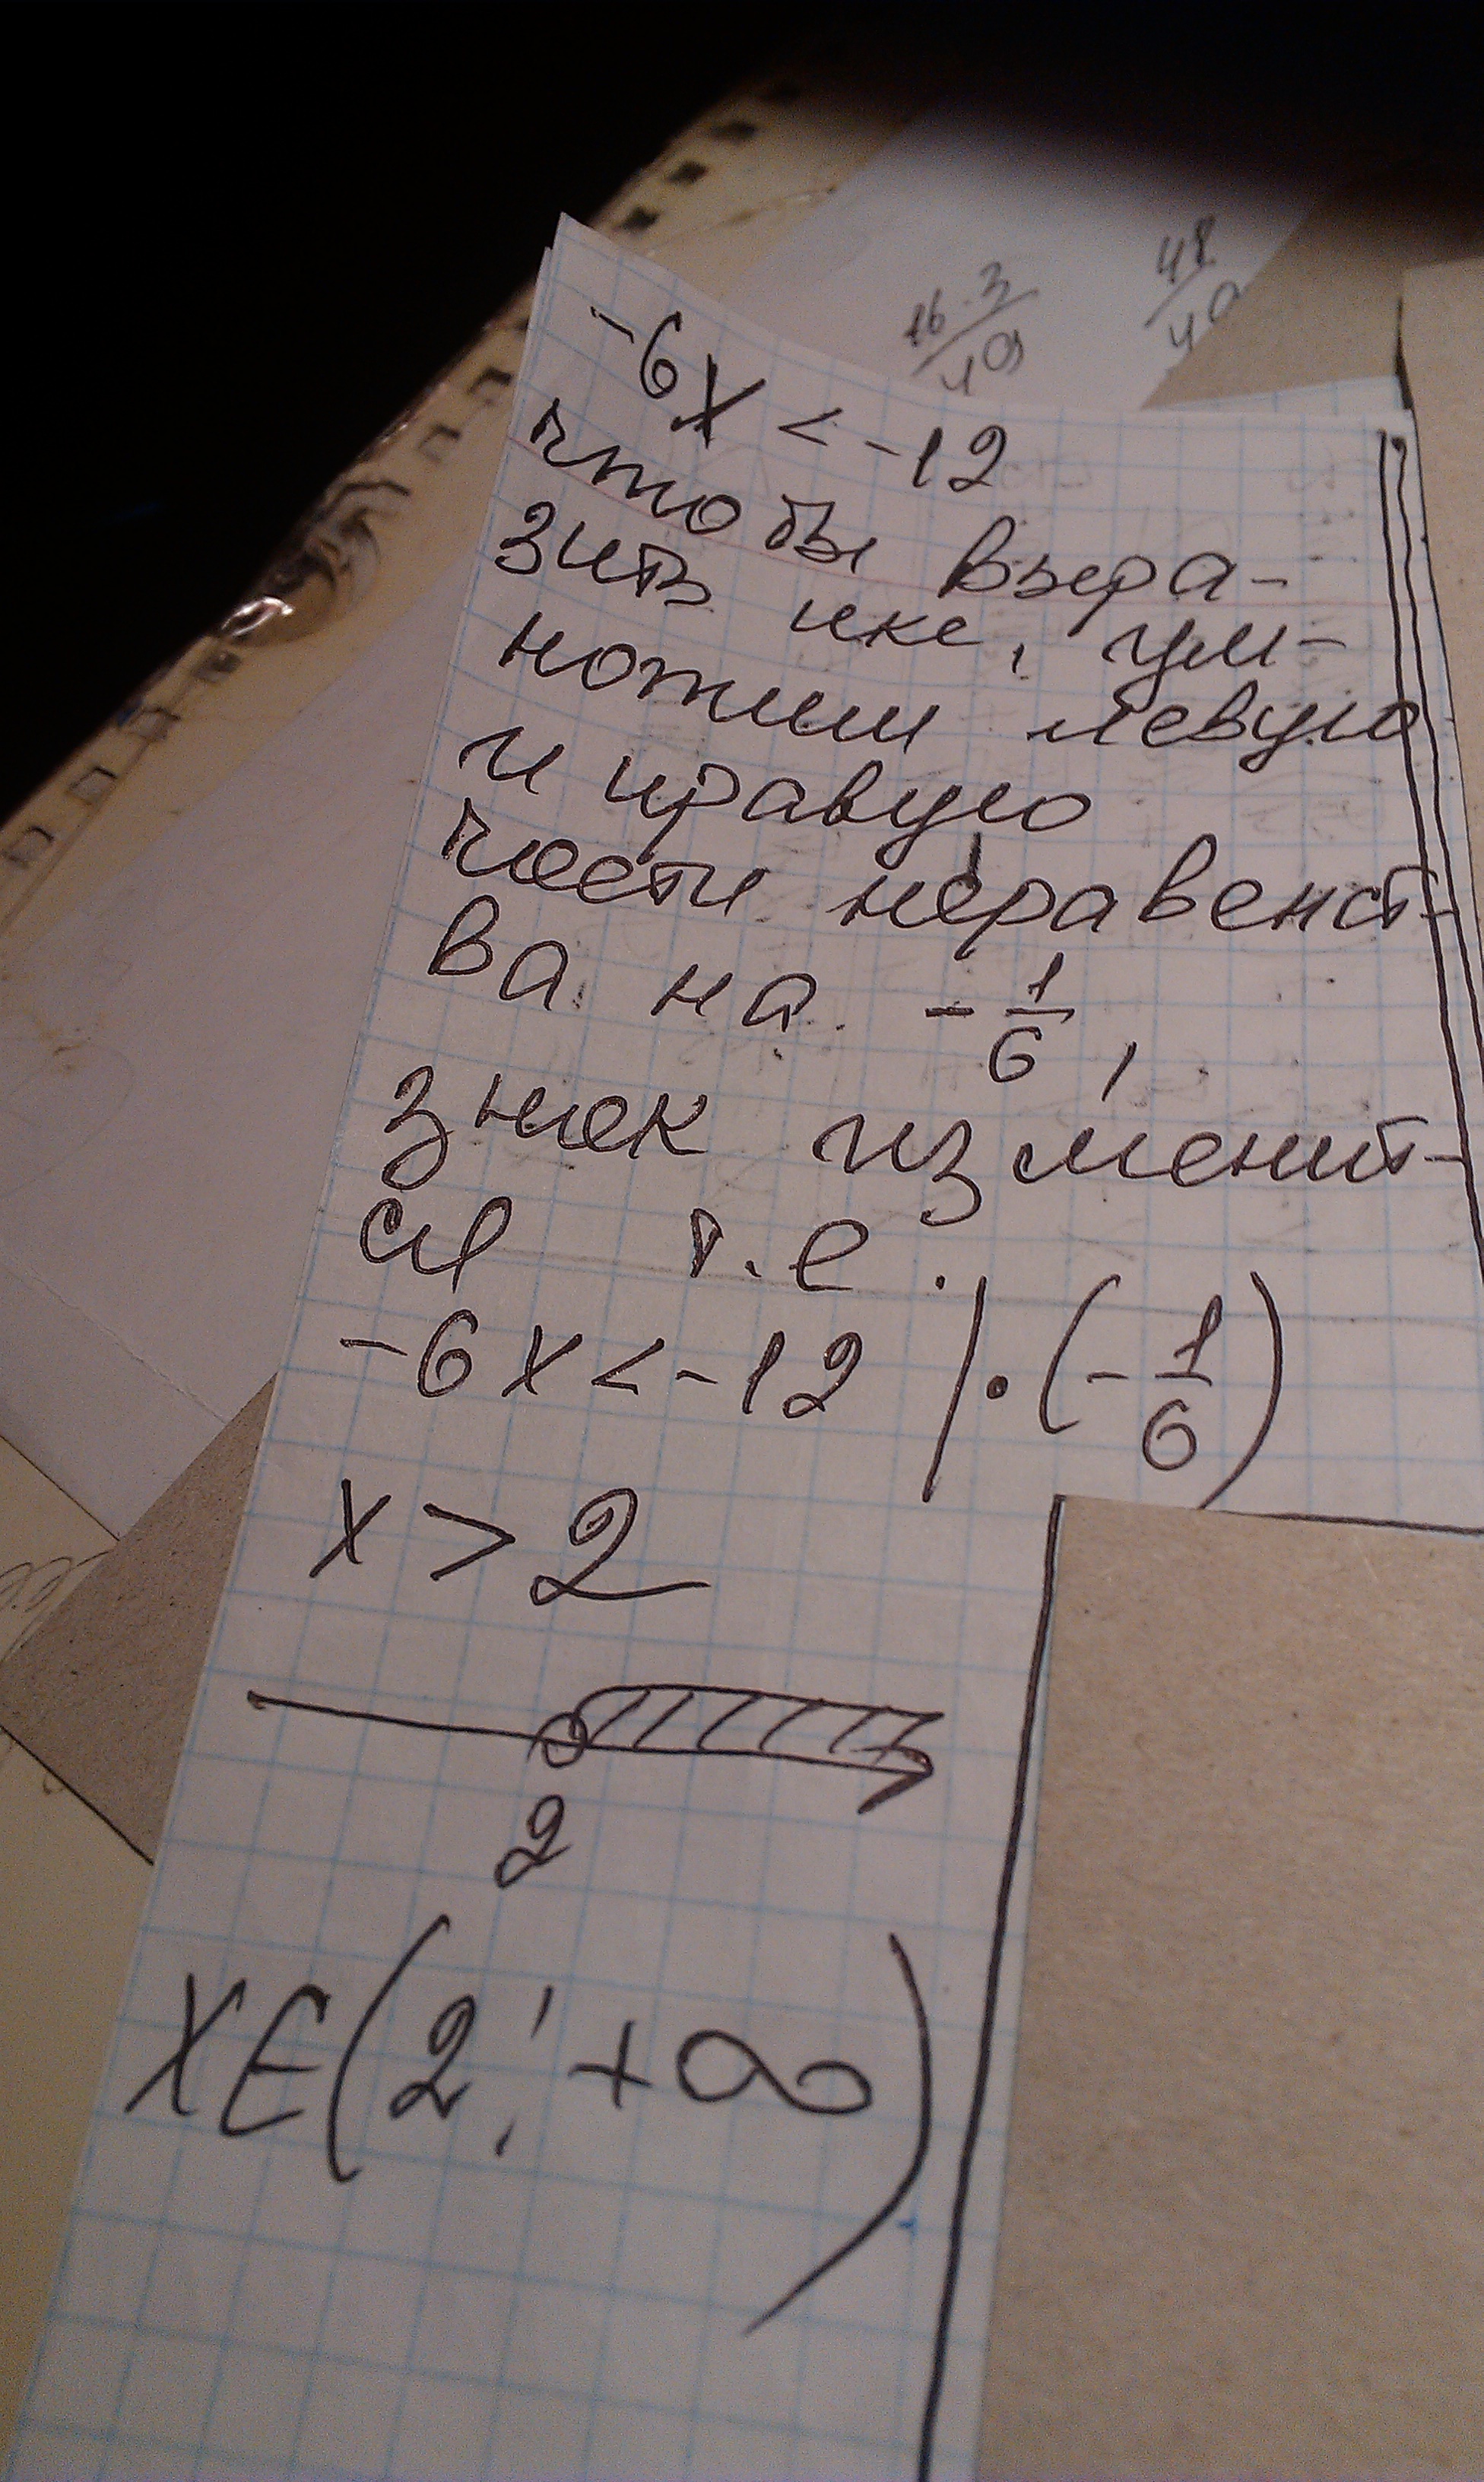 16·3
49
48
49
-6x < -12
чтобы выра-
зить икс, ум-
ножим левую
и правую
части неравенст-
ва на -1/6,
знак изменит-
ся т.е.
-6x < -12 | · (-1/6)
x > 2
2
x∈(2; +∞)